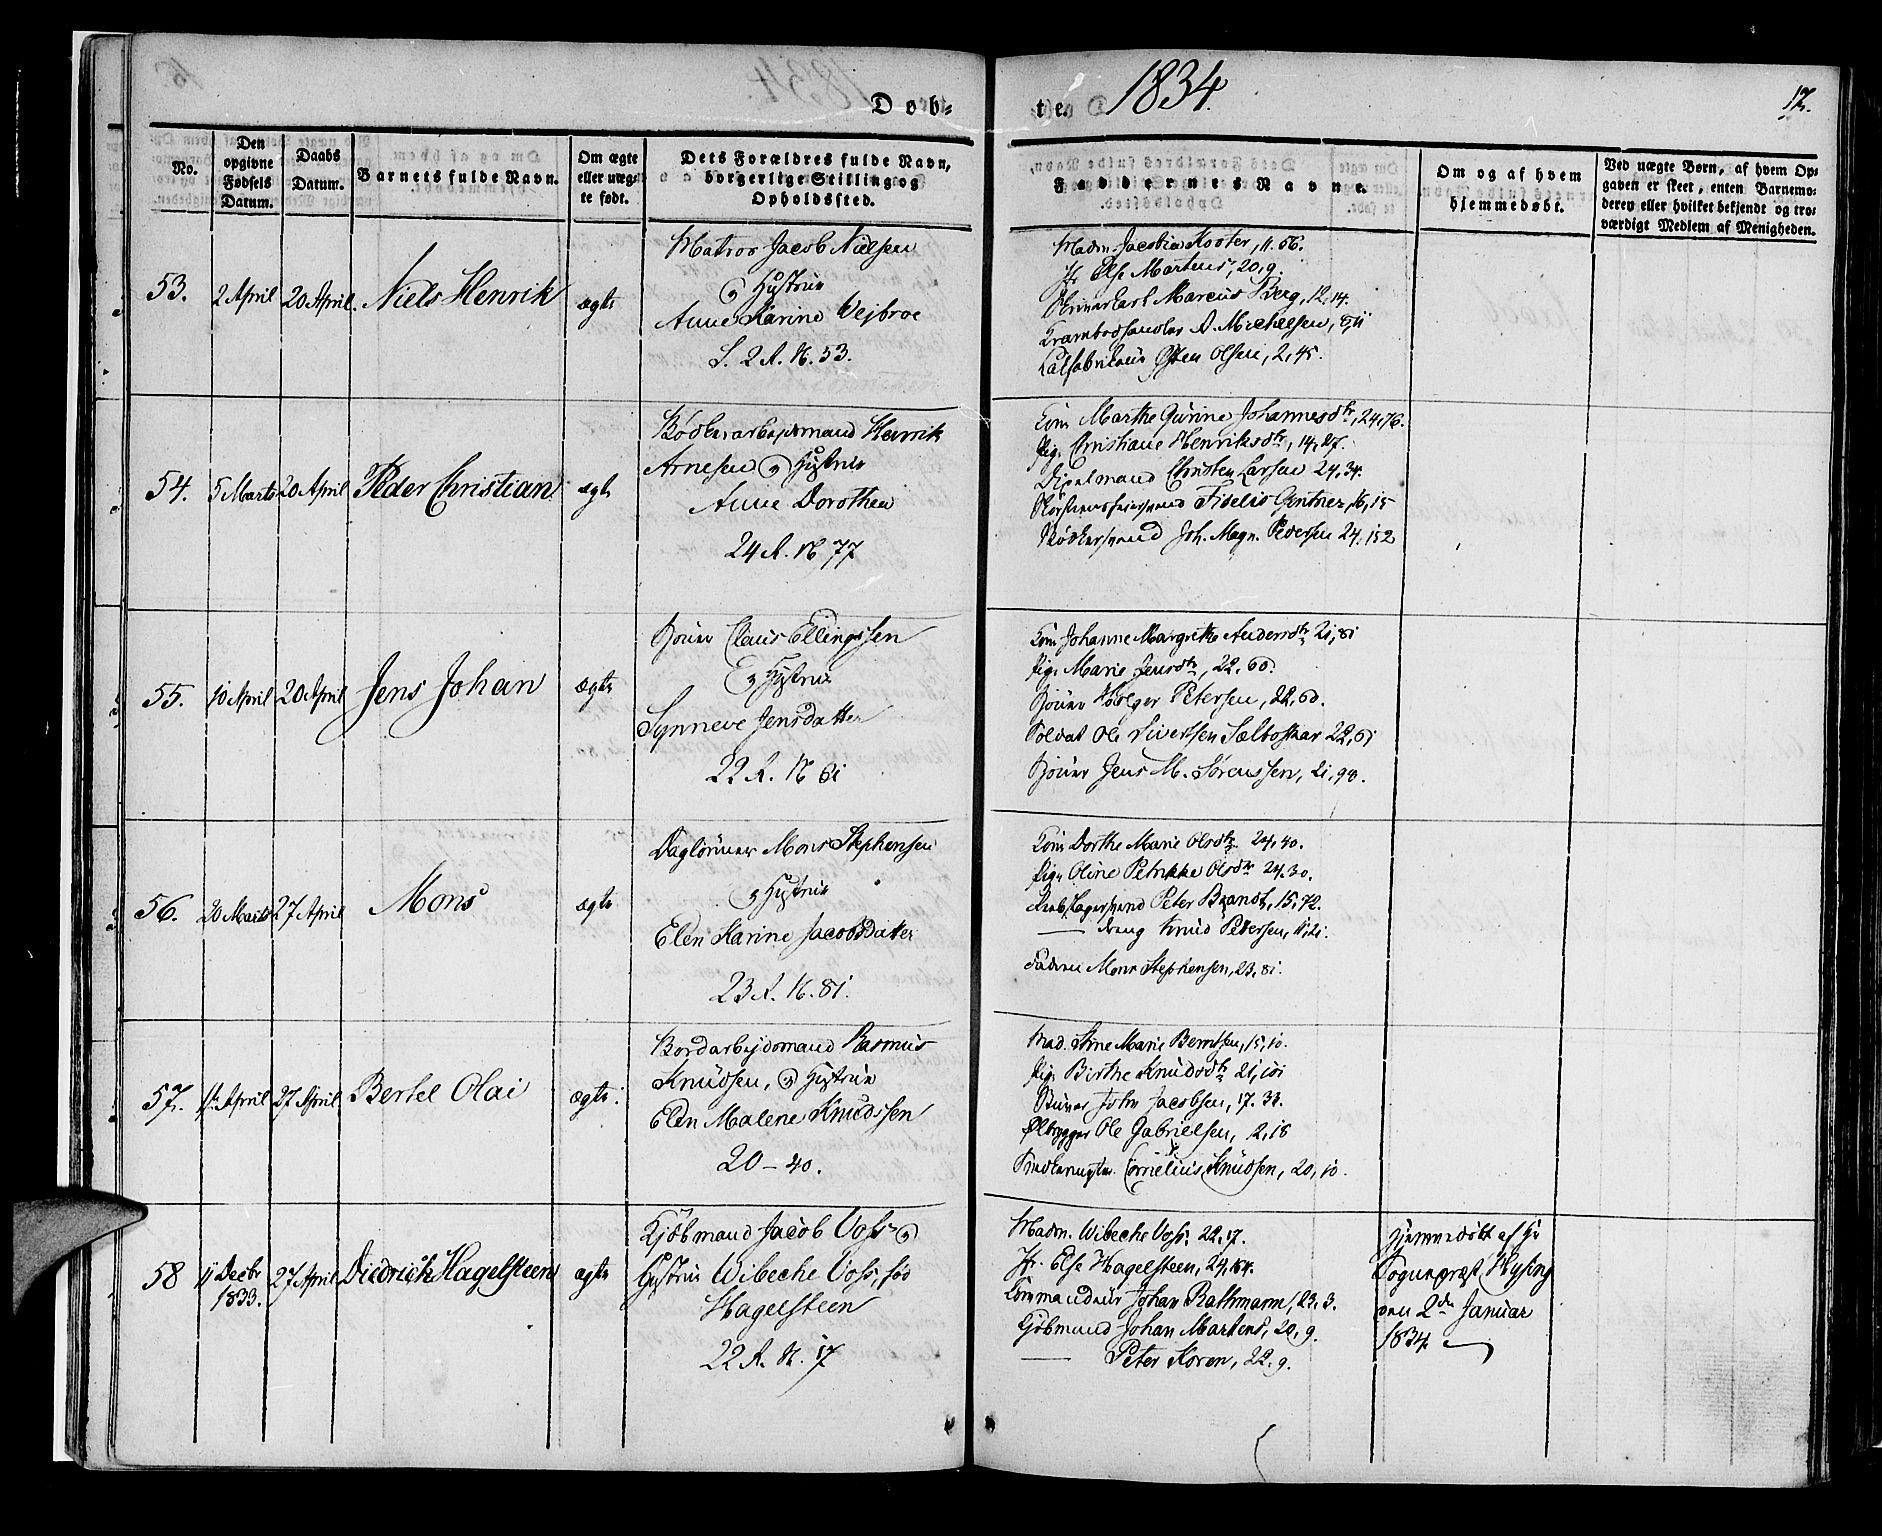 Døb-
te.
1834.
17.
No.
Den
opgivne
Fødsels
Datum.
Daabs
Datum.
Barnets fulde Navn.
Om ægte
eller uæg-
te født.
Dets Forældres fulde Navn,
borgerlige Stilling og
Opholdssted.
Faddernes Navne.
Om og af hvem
hjemmedøbt.
Ved uægte Børn, af hvem Op-
gaven er skeet, enten Barnemo-
deren eller hvilket bekjendt og tro-
værdigt Medlem af Menigheden.
53.
2 April
20 April.
Niels Henrik
ægte
Matros Jacob Nielsen
og Hustrue
Anne Karine Wejbroe
S. 2 R. N. 53.
Madm. Jacobia Kooter, 11. 56.
Jfr. Else Martens, 20, 9.
Carl Marcus Berg, 12, 14.
A. Michelsen,
Østen Olsen, 2, 45.
54.
5 Marts
20 April
Peder Christian
ægte
Bødkerarbejdsmand Henrik
Arnesen og Hustrue
Anne Dorothea
24 R. N 77
Kone Marthe Gurine Johannesdtr, 24, 76.
Pige Christiane Henriksdtr, 14, 27.
Christen Larsen 24. 34.
Fidelis Gentner, 16, 15
Bødkersvend Joh. Magn. Pedersen 24. 152
55.
10 April
20 April
Jens Johan
ægte
Claus Ellingsen
og Hustrue
Synneve Jensdatter
22 R. N 61
Kone Johanne Margrethe Andersdtr 21, 81
Pige Marie Jensdtr, 22. 60.
Holger Petersen, 22, 60.
Soldat Ole Sivertsen Sælboskar 22, 61
Jens M. Sørenssen, 21, 98.
56.
20 Marts
27 April
Mons
ægte
Daglønner Mons Stephensen
og Hustrue
Elen Karine Jacobsdatter
23 R. N. 81.
Kone Dorthe Marie Olsdtr. 24, 40.
Pige Oline Petrikke Olsdtr 24. 30.
Peter Brandt, 15, 72.
— dreng Knud Petersen, 11, 21.
Faderen Mons Stephensen, 23, 81.
57.
14 April
27 April
Bertel Olai
ægte.
Bordarbejdsmand Rasmus
Knudsen, og Hustrue
Elen Malene Knudssen
20 – 40.
Mad. Stine Marie Berntsen, 15, 10.
Pige Birthe Knudsdtr 21, 101
John Jacobsen, 17. 33.
Ølbrygger Ole Gabrielsen, 2, 18
Cornelius Knudsen, 20, 10.
58
11 Decbr
1833.
27 April
Diedrich Hagelsteen
ægte
Kjøbmand Jacob Voss og
Hustrue Wibeche Voss, fød
Hagelsteen
22 R. N. 17
Madm. Wibeche Voss. 22, 17.
Jfr. Else Hagelsteen, 24, 164.
Commandeur Johan Rathmann, 23, 3.
Kjøbmand Johan Martens, 20, 9.
— Peter Koren, 22, 9.
Hjemmedøbt af Hr
Sognepræst Hysing
den 2den Januar
1834